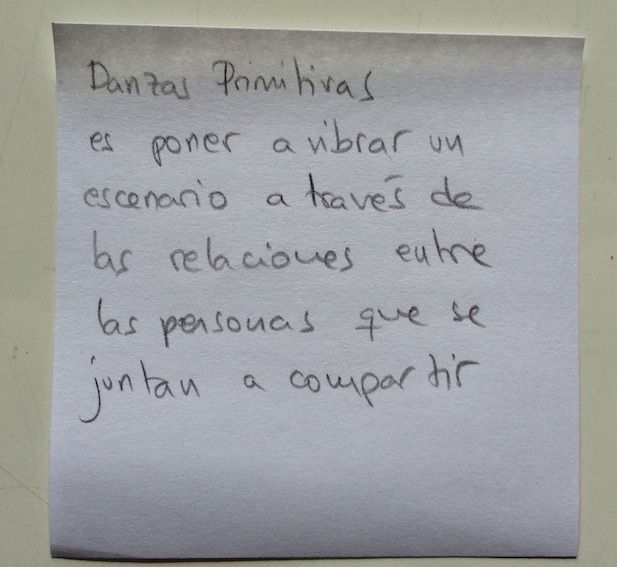 Danzas Primitivas
es poner a vibrar un
escenario a través de
las relaciones entre
las personas que se
juntan a compartir